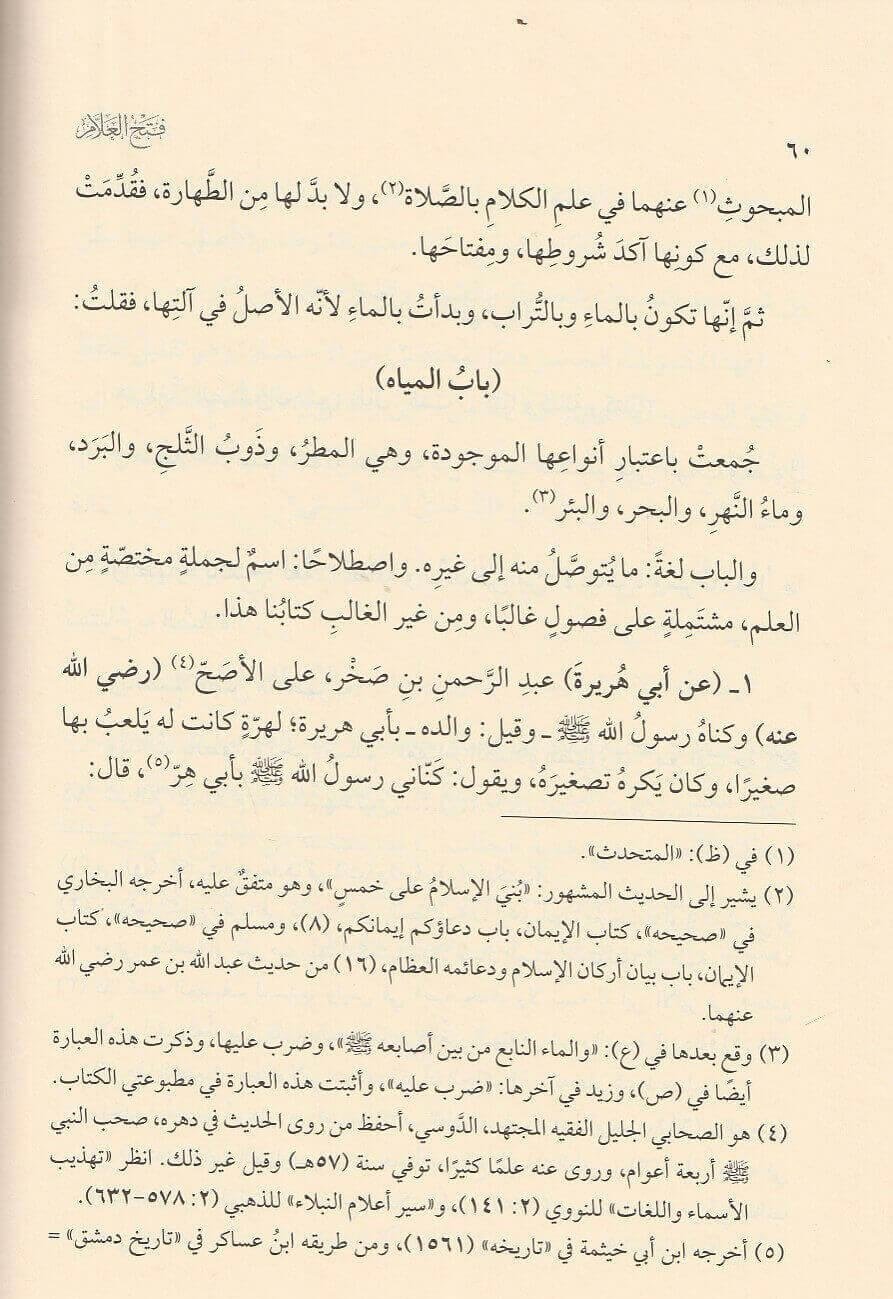 ٦٠
فتح العلام
المبحوثِ(١) عنهما في علمِ الكلامِ بالصَّلاة(٢)، ولا بدَّ لها مِن الطَّهارة، فقُدِّمَتْ
لذلك، مع كونِها آكدَ شُروطِها، ومِفتاحَها.
ثمَّ إنّها تكونُ بالماءِ وبالتُّراب، وبدأتُ بالماءِ لأنّه الأصلُ في آلتِها، فقلتُ:
(بابُ المياه)
جُمعتْ باعتبارِ أنواعِها الموجودة، وهي المطرُ، وذَوبُ الثَّلجِ، والبَرَد،
وماءُ النَّهرِ، والبحر، والبئر(٣).
والباب لغةً: ما يُتوصَّلُ منه إلى غيرِه. واصطلاحًا: اسمٌ لجملةٍ مختصّةٍ مِن
العلم، مشتَمِلةٍ على فصولٍ غالبًا، ومِن غير الغالبِ كتابُنا هذا.
١ـ (عن أبي هُريرةَ) عبدِ الرَّحمنِ بنِ صَخْر، على الأصَحّ(٤) (رضي الله
عنه) وكناهُ رسولُ الله ﷺ ـ وقيل: والده ـ بأبي هريرة؛ لهرّةٍ كانت له يَلعبُ بها
صغيرًا، وكان يَكرهُ تصغيرَهُ، ويقول: كَنّاني رسولُ الله ﷺ بأبي هِرّ(٥)، قال:
(١) في (ظ): «المتحدث».
(٢) يشير إلى الحديث المشهور: «بُنيَ الإسلامُ على خمسٍ»، وهو متفقٌ عليه، أخرجه البخاري
في «صحيحه»، كتاب الإيمان، باب دعاؤكم إيمانكم، (٨)، ومسلم في «صحيحه»، كتاب
الإيمان، باب بيان أركان الإسلام ودعائمه العظام، (١٦) من حديث عبد الله بن عمر رضي الله
عنهما.
(٣) وقع بعدها في (ع): «والماء النابع من بين أصابعه ﷺ»، وضرب عليها، وذكرت هذه العبارة
أيضًا في (ص)، وزيد في آخرها: «ضرب عليه»، وأثبتت هذه العبارة في مطبوعتي الكتاب.
(٤) هو الصحابي الجليل الفقيه المجتهد، الدَّوسي، أحفظ من روى الحديث في دهره، صحب النبي
ﷺ أربعة أعوام، وروى عنه علمًا كثيرًا، توفي سنة (٥٧هـ) وقيل غير ذلك. انظر «تهذيب
الأسماء واللغات» للنووي (٢: ١٤١)، و«سير أعلام النبلاء» للذهبي (٢: ٥٧٨-٦٣٢).
(٥) أخرجه ابن أبي خيثمة في «تاريخه» (١٥٦١)، ومن طريقه ابنُ عساكر في «تاريخ دمشق» =